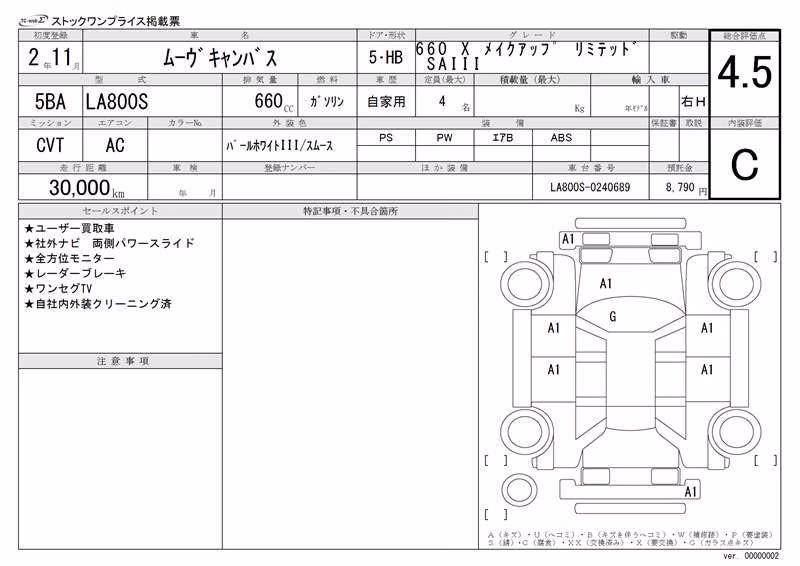 TC-webΣ ストックワンプライス掲載票
初度登録 車名 ドア・形状 グレード 駆動 総合評価点
2年11月 ムーヴキャンバス 5・HB 660 X メイクアップ リミテッド SAIII 4.5
型式 排気量 燃料 車歴 定員(最大) 積載量(最大) 輸入車
5BA LA800S 660CC ガソリン 自家用 4名 Kg 年モデル 右H
ミッション エアコン カラーNo. 外装色 装備 保証書 取説 内装評価
CVT AC パールホワイトIII/スムース PS PW エアB ABS C
走行距離 車検 登録ナンバー ほか装備 車台番号 預託金
30,000km 年 月 LA800S-0240689 8,790円
セールスポイント
★ユーザー買取車
★社外ナビ 両側パワースライド
★全方位モニター
★レーダーブレーキ
★ワンセグTV
★自社内外装クリーニング済
注意事項
特記事項・不具合箇所
A1
[ ] [ ]
A1
G
A1 A1
A1 A1
[ ] [ ]
A1
[ ]
A(キズ)・U(ヘコミ)・B(キズを伴うヘコミ)・W(補修跡)・P(要塗装)
S(錆)・C(腐食)・XX(交換済み)・X(要交換)・G(ガラス点キズ)
ver. 00000002